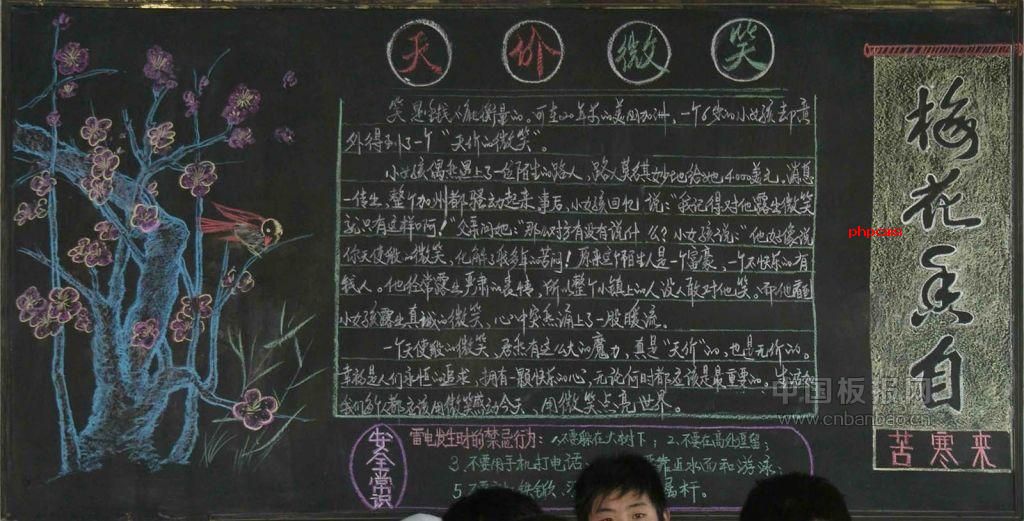 天价微笑
笑是钱不能衡量的。可在20年前的美国加州，一个6岁的小女孩却意
外得到了一个“天价的微笑”。
小女孩偶然遇上了一位陌生的路人，路人莫名其妙地给她4000美元，消息
一传出，整个加州都骚动起来。事后，小女孩回忆说：“我记得对他露出微笑
就只有这样啊！”父亲问她：“那么对方有没有说什么？”小女孩说：“他好像说
你天使般的微笑，化解了我多年的苦闷！原来这个陌生人是一个富豪，一个不快乐的有
钱人。他经常露出严肃的表情，所以整个小镇上的人没人敢对他笑。而他
小女孩露出真诚的微笑，心中突然涌上了一股暖流。
一个天使般的微笑，居然有这么大的魔力，真是“天价”的，也是无价的。
幸福是人们永恒的追求，拥有一颗快乐的心，无论何时都应该是最重要的。
我们每人都应该用微笑感动今天，用微笑点亮世界。
安全常识
雷电发生时的禁忌行为：1、不要躲在大树下；2、不要在高处逗留；
3、不要用手机打电话 靠近水面和游泳；
5、不要 属杆。
梅花香自
苦寒来
phpcms
中国板报网
www.cnbanbao.cn